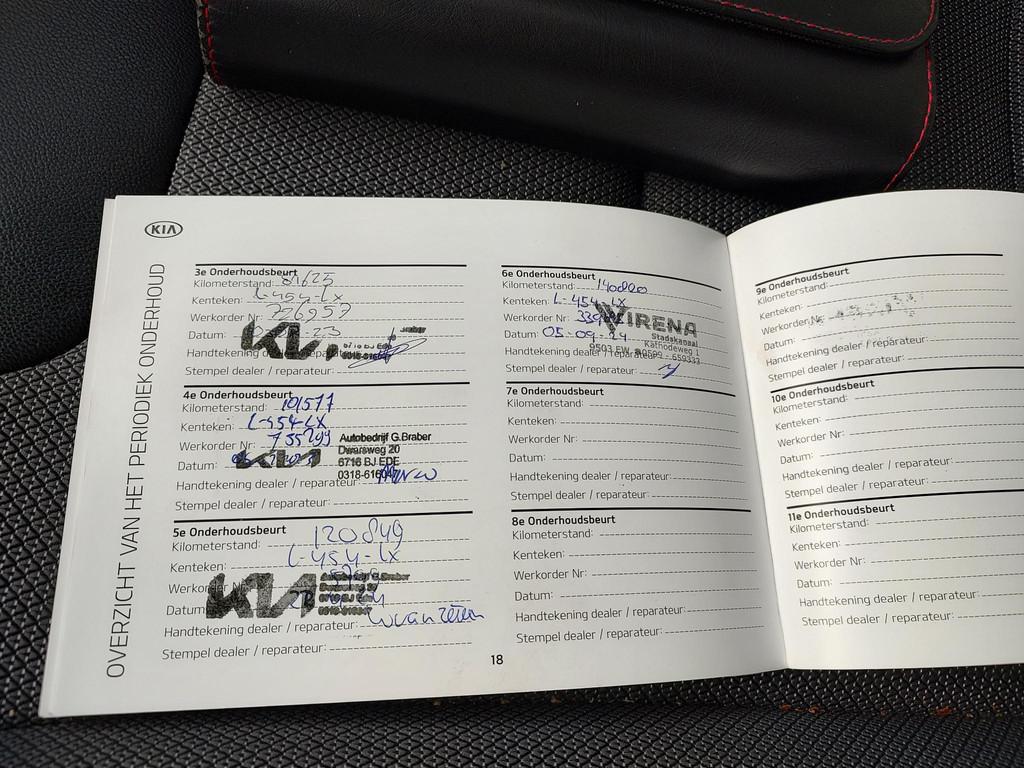 KIA
OVERZICHT VAN HET PERIODIEK ONDERHOUD
3e Onderhoudsbeurt
Kilometerstand: 81625
Kenteken: L-454-LX
Werkorder Nr: 726957
Datum: -23
Handtekening dealer / reparateur:
Stempel dealer / reparateur:
KIA
4e Onderhoudsbeurt
Kilometerstand: 101577
Kenteken: L-454-LX
Werkorder Nr: 755299
Datum:
Handtekening dealer / reparateur:
Stempel dealer / reparateur:
KIA
Autobedrijf G.Braber
Dwarsweg 20
6716 BJ EDE
0318-616047
5e Onderhoudsbeurt
Kilometerstand: 120849
Kenteken: L-454-LX
Werkorder Nr:
Datum:
Handtekening dealer / reparateur:
Stempel dealer / reparateur:
KIA
Autobedrijf G.Braber
6e Onderhoudsbeurt
Kilometerstand: 140020
Kenteken: L-454-LX
Werkorder Nr:
Datum: 05-09-24
Handtekening dealer / reparateur:
Stempel dealer / reparateur:
WIRENA
Stadskanaal
Kathodeweg 1
9503 EW 0599-659333
7e Onderhoudsbeurt
Kilometerstand:
Kenteken:
Werkorder Nr:
Datum:
Handtekening dealer / reparateur:
Stempel dealer / reparateur:
8e Onderhoudsbeurt
Kilometerstand:
Kenteken:
Werkorder Nr:
Datum:
Handtekening dealer / reparateur:
Stempel dealer / reparateur:
18
9e Onderhoudsbeurt
Kilometerstand:
Kenteken:
Werkorder Nr:
Datum:
Handtekening dealer / reparateur:
Stempel dealer / reparateur:
10e Onderhoudsbeurt
Kilometerstand:
Kenteken:
Werkorder Nr:
Datum:
Handtekening dealer / reparateur:
Stempel dealer / reparateur:
11e Onderhoudsbeurt
Kilometerstand:
Kenteken:
Werkorder Nr:
Datum:
Handtekening dealer / reparateur:
Stempel dealer / reparateur: